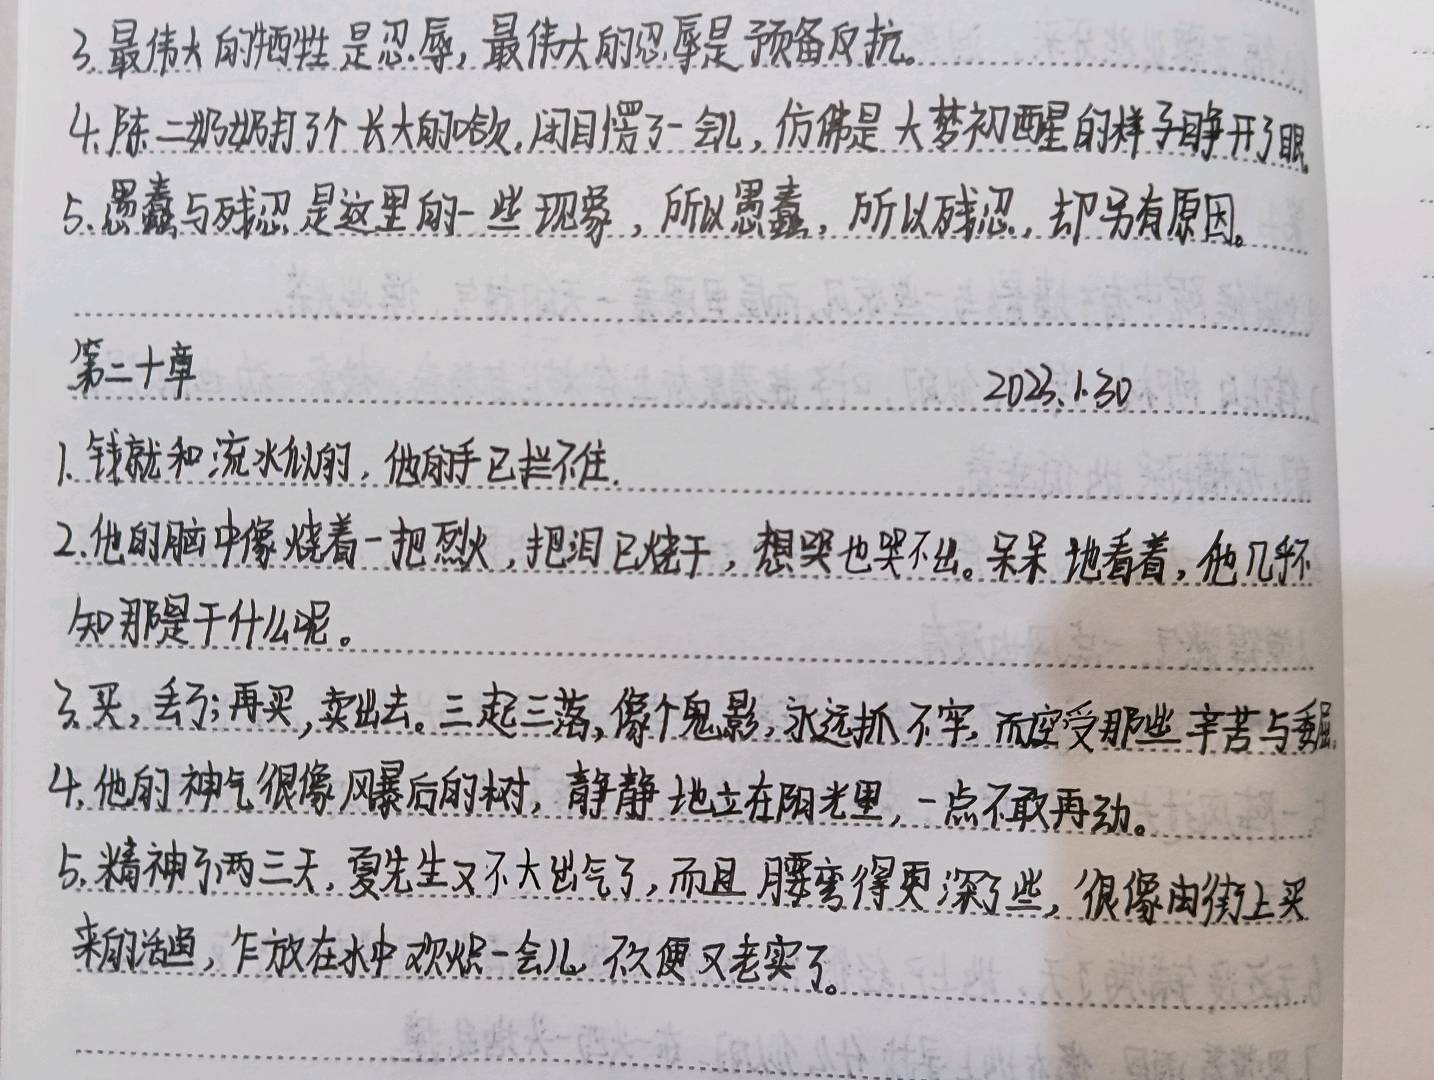 3.最伟大的牺牲是忍辱,最伟大的忍辱是预备反抗。
4.陈二奶奶打了个长大的哈欠,闭目愣了一会儿,仿佛是大梦初醒的样子睁开了眼
5.愚蠢与残忍是这里的一些现象,所以愚蠢,所以残忍,却另有原因。
第二十章 2023.1.30
1.钱就和流水似的,他的手已拦不住.
2.他的脑中像烧着一把烈火,把泪已烧干,想哭也哭不出。呆呆地看着,他几乎不
知那是干什么呢。
3.买,丢了;再买,卖出去。三起三落,像个鬼影,永远抓不牢,而空受那些辛苦与委屈.
4.他的神气很像风暴后的树,静静地立在阳光里,一点不敢再动。
5.精神了两三天,夏先生又不大出气了,而且腰弯得更深了些,很像由街上买
来的活鱼,乍放在水中欢炽一会儿,不久便又老实了。